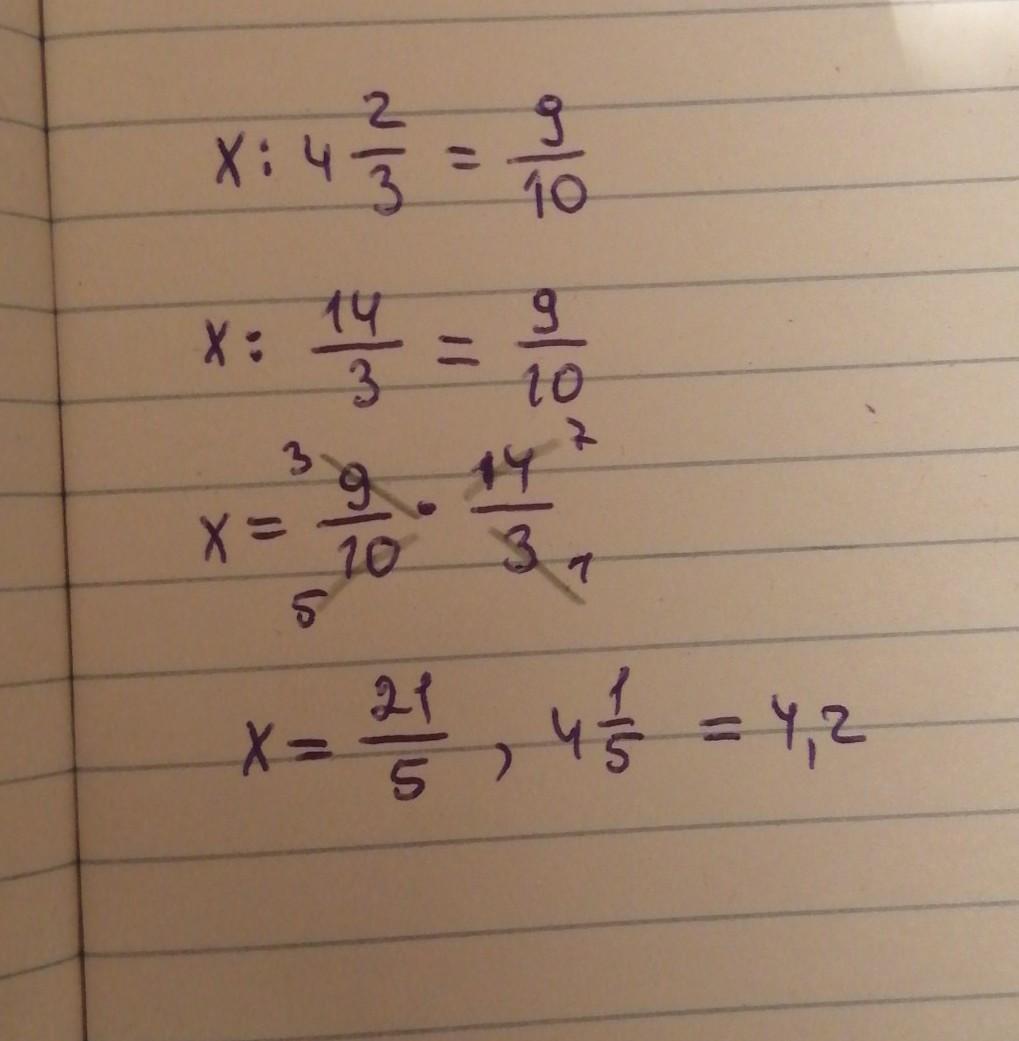 x : 4 2/3 = 9/10
x : 14/3 = 9/10
x = 3 9/10 5 · 14 7/3 1
x = 21/5 , 4 1/5 = 4,2